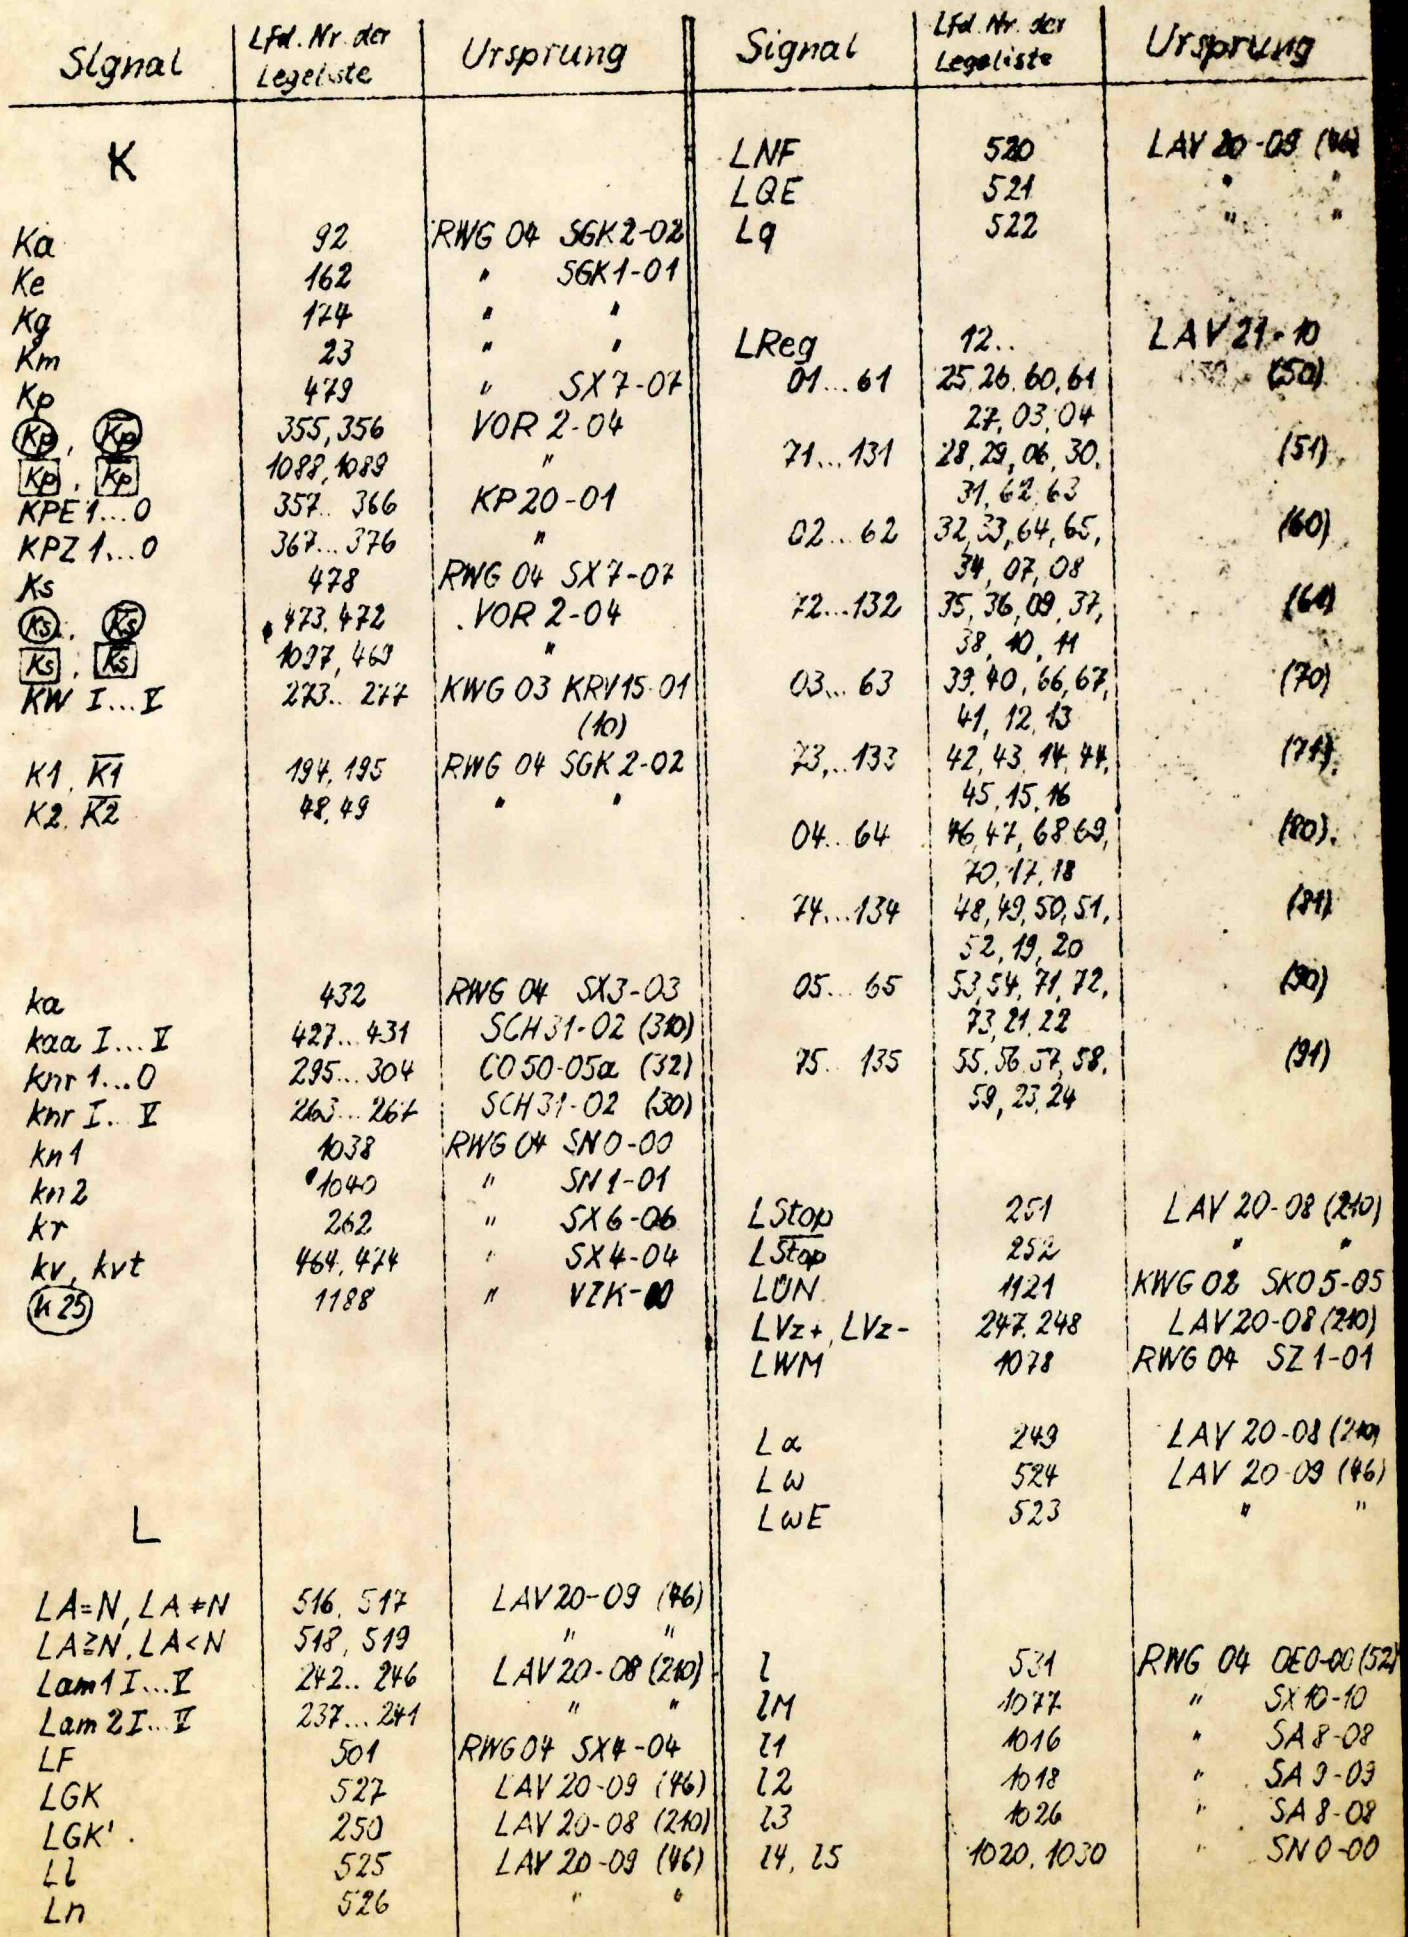 Signal Lfd. Nr. der Legeliste Ursprung
K
Ka 92 RWG 04 SGK 2-02
Ke 162 " SGK 1-01
Kg 174 " "
Km 23 " "
Kp 479 " SX 7-07
Kp, K̅p̅ 355, 356 VOR 2-04
Kp, K̅p̅ 1088, 1089 "
KPE 1...0 357... 366 KP 20-01
KPZ 1...0 367...376 "
Ks 478 RWG 04 SX 7-07
Ks, K̅s̅ 473, 472 VOR 2-04
Ks, K̅s̅ 1097, 469 "
KW I...V 273... 277 KWG 03 KRV 15-01
(10)
K1, K̅1̅ 194, 195 RWG 04 SGK 2-02
K2, K̅2̅ 48, 49 " "
ka 432 RWG 04 SX3-03
kaa I...V 427...431 SCH 31-02 (310)
knr 1...0 295...304 CO 50-05a (32)
knr I...V 263...267 SCH 31-02 (30)
kn1 1038 RWG 04 SN 0-00
kn2 1040 " SN 1-01
kr 262 " SX 6-06
kv, kvt 464, 474 " SX 4-04
k 25 1188 " VZK-00
L
LA=N, LA≠N 516, 517 LAV 20-09 (46)
LA≥N, LA<N 518, 519 " "
Lam1 I...V 242... 246 LAV 20-08 (210)
Lam2 I...V 237...241 " "
LF 501 RWG 04 SX4-04
LGK 527 LAV 20-09 (46)
LGK' 250 LAV 20-08 (210)
Ll 525 LAV 20-09 (46)
Ln 526 " "
Signal Lfd. Nr. der Legeliste Ursprung
LNF 520 LAV 20-09 (46)
LQE 521 " "
Lq 522 " "
LReg 12.. LAV 21-10
01...61 25, 26, 60, 61 (50)
27, 03, 04
71...131 28, 29, 06, 30, (51)
31, 62, 63
02...62 32, 33, 64, 65, (60)
34, 07, 08
72...132 35, 36, 09, 37, (61)
38, 10, 11
03...63 39, 40, 66, 67, (70)
41, 12, 13
73...133 42, 43, 14, 44, (71)
45, 15, 16
04...64 46, 47, 68, 69, (80)
70, 17, 18
74...134 48, 49, 50, 51, (81)
52, 19, 20
05...65 53, 54, 71, 72, (90)
73, 21, 22
75...135 55, 56, 57, 58, (91)
59, 23, 24
LStop 251 LAV 20-08 (210)
LS̅t̅o̅p̅ 252 " "
LÜN 1121 KWG 02 SKO 5-05
LVz+, LVz- 247, 248 LAV 20-08 (210)
LWM 1078 RWG 04 SZ 1-01
Lα 249 LAV 20-08 (210)
Lω 524 LAV 20-09 (46)
LωE 523 " "
l 531 RWG 04 OE0-00 (52)
lM 1077 " SX 10-10
l1 1016 " SA 8-08
l2 1018 " SA 9-09
l3 1026 " SA 8-08
l4, l5 1020, 1030 " SN 0-00